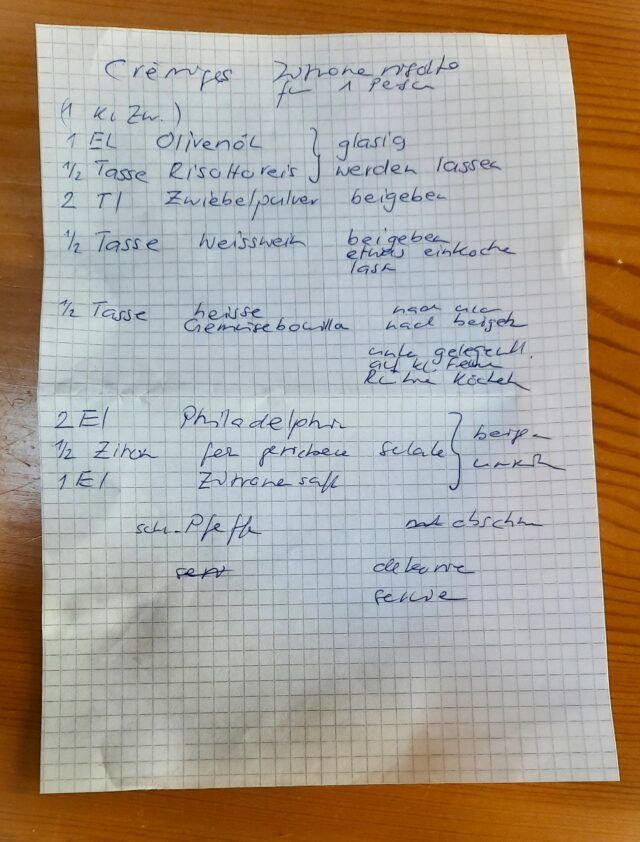 Crèmiges Zitronerisotto
für 1 Person
(1 kl. Zw.)
1 EL Olivenöl } glasig
1/2 Tasse Risottoreis } werden lassen
2 Tl Zwiebelpulver beigeben
1/2 Tasse Weisswein beigeben
etwas einkoche
lassn
1/2 Tasse heisse nach und
Gemüsebouillo nach beigeb
unter gelegentl.
auf kl. Feuer
Rühre Köcheln
2 El Philadelphia
1/2 Zitron geriebene Schale } beigen
1 El Zitronesaft
sch. Pfeffe abschm
dekorie
servie